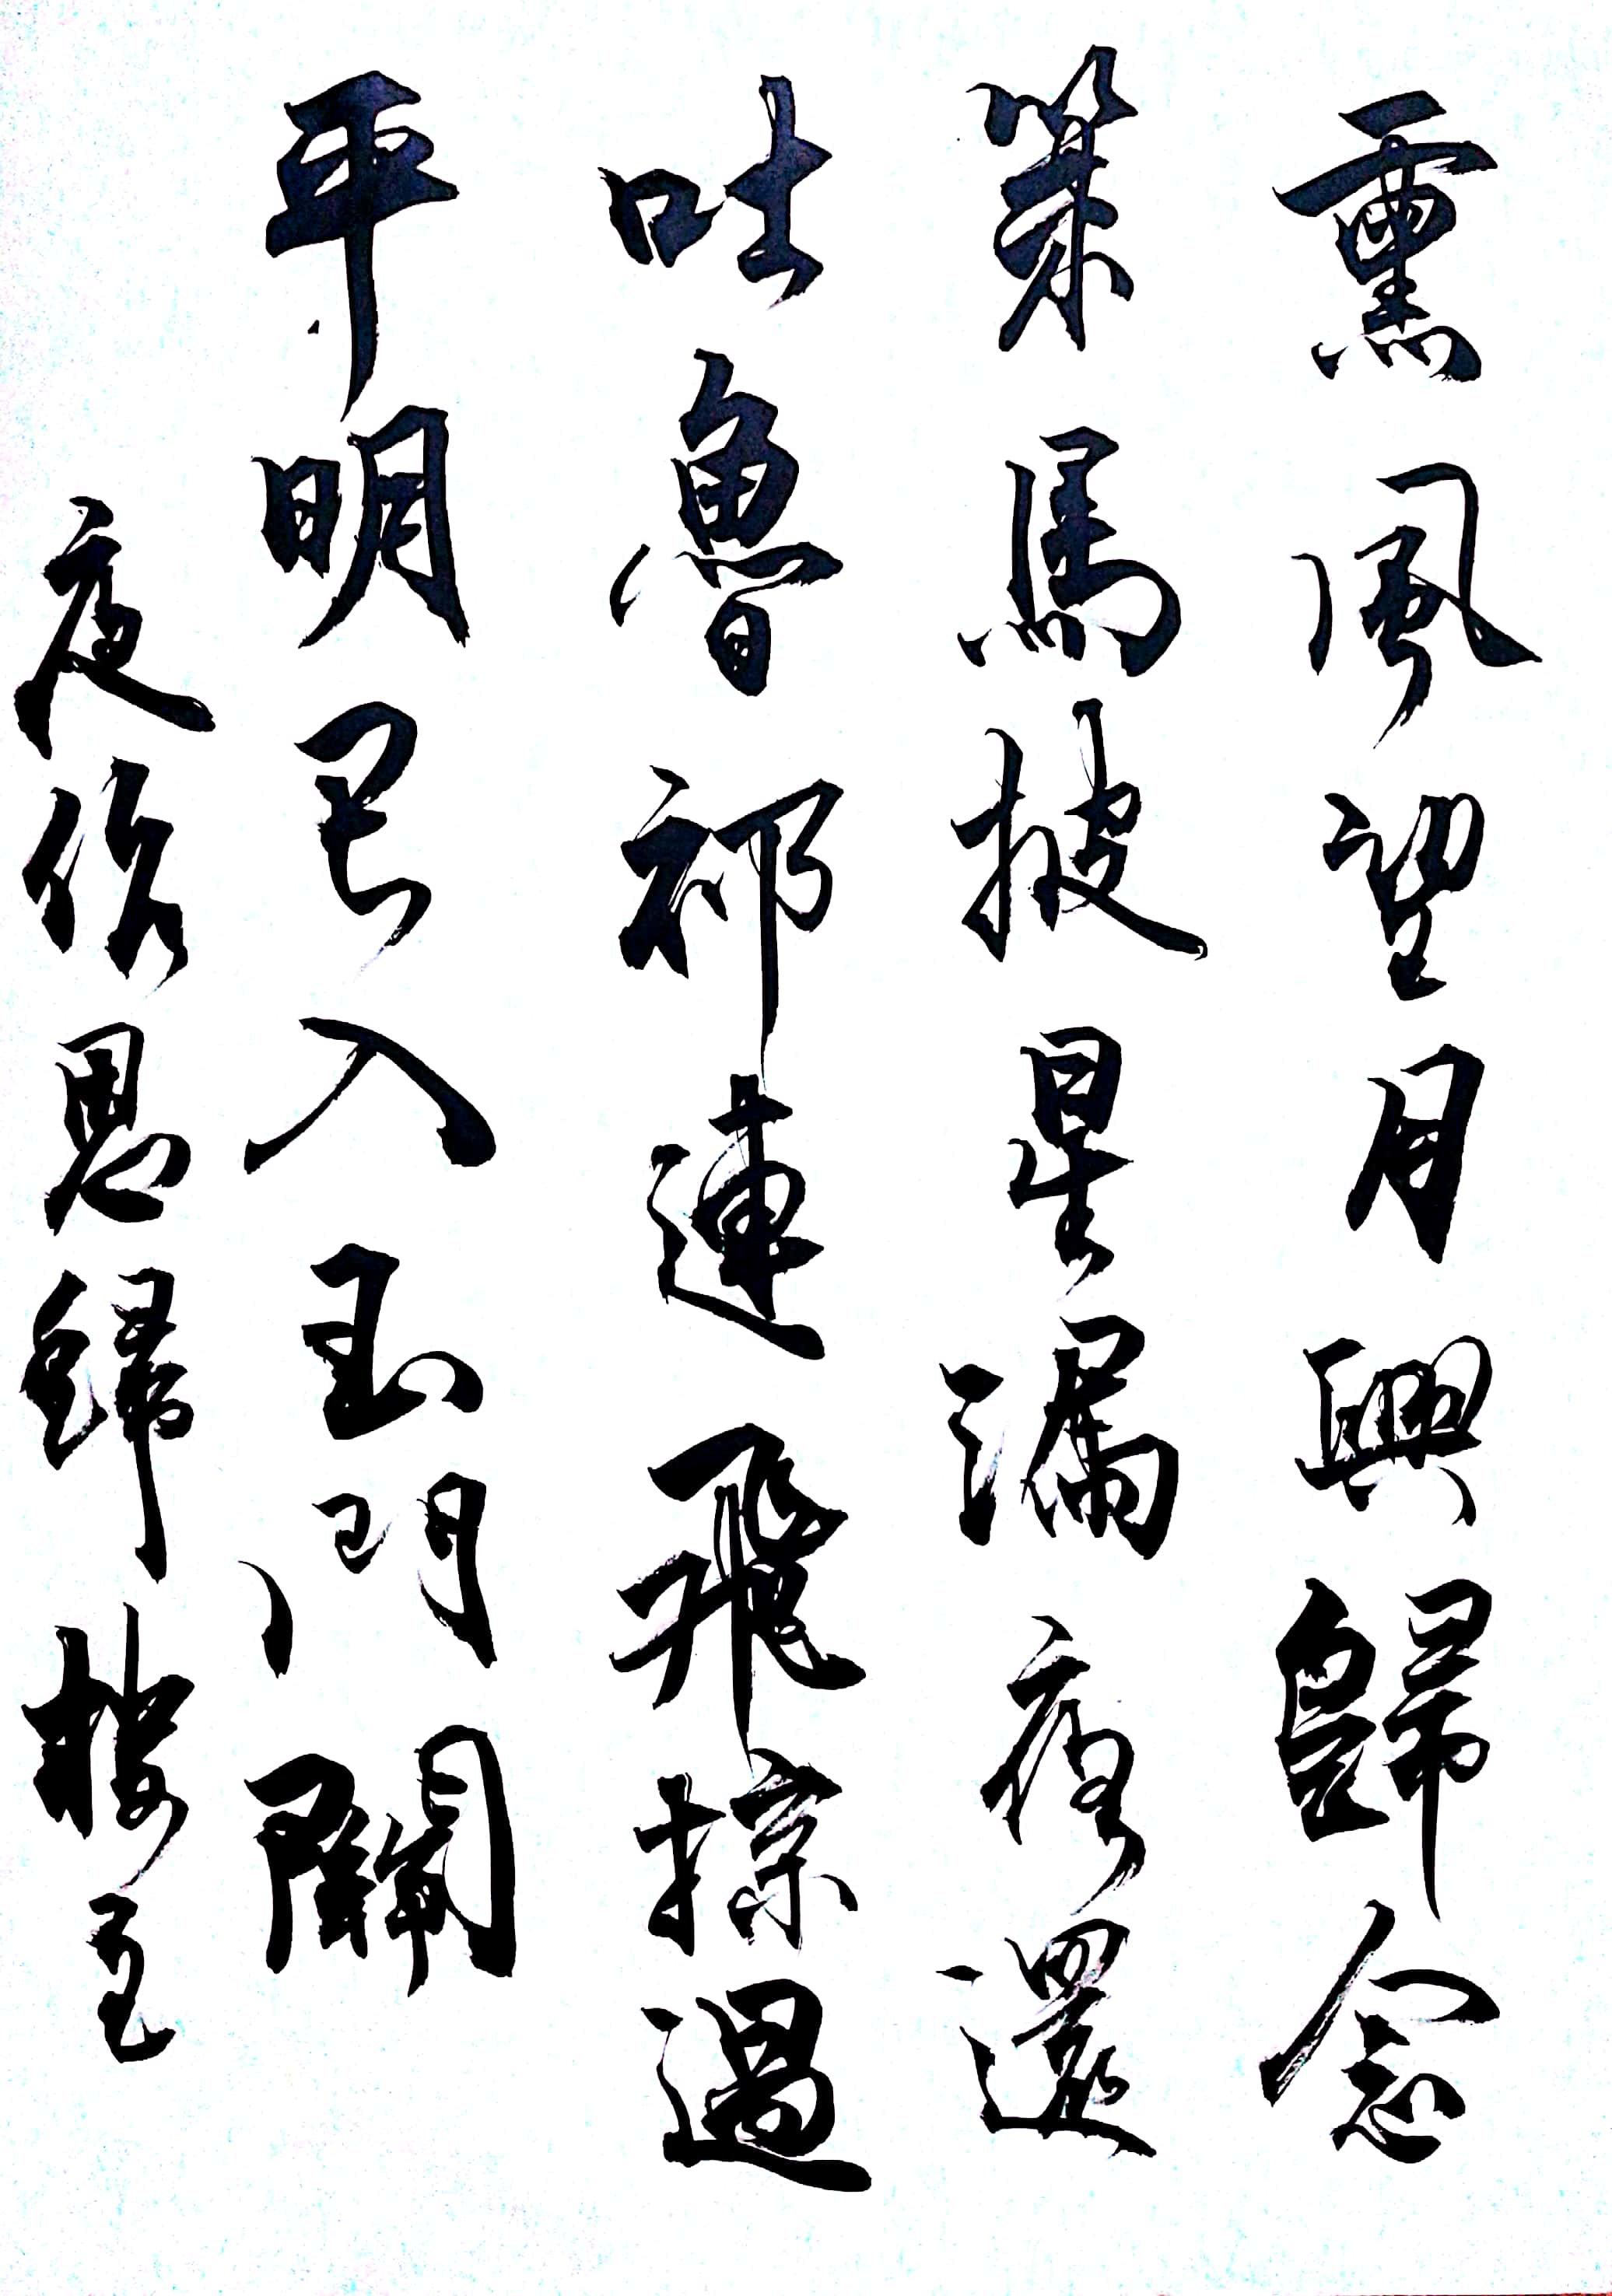 熏風望月興歸念
策馬披星漏夜還
吐魯祁連飛掠過
平明已入玉門關
夜作思歸 樓主